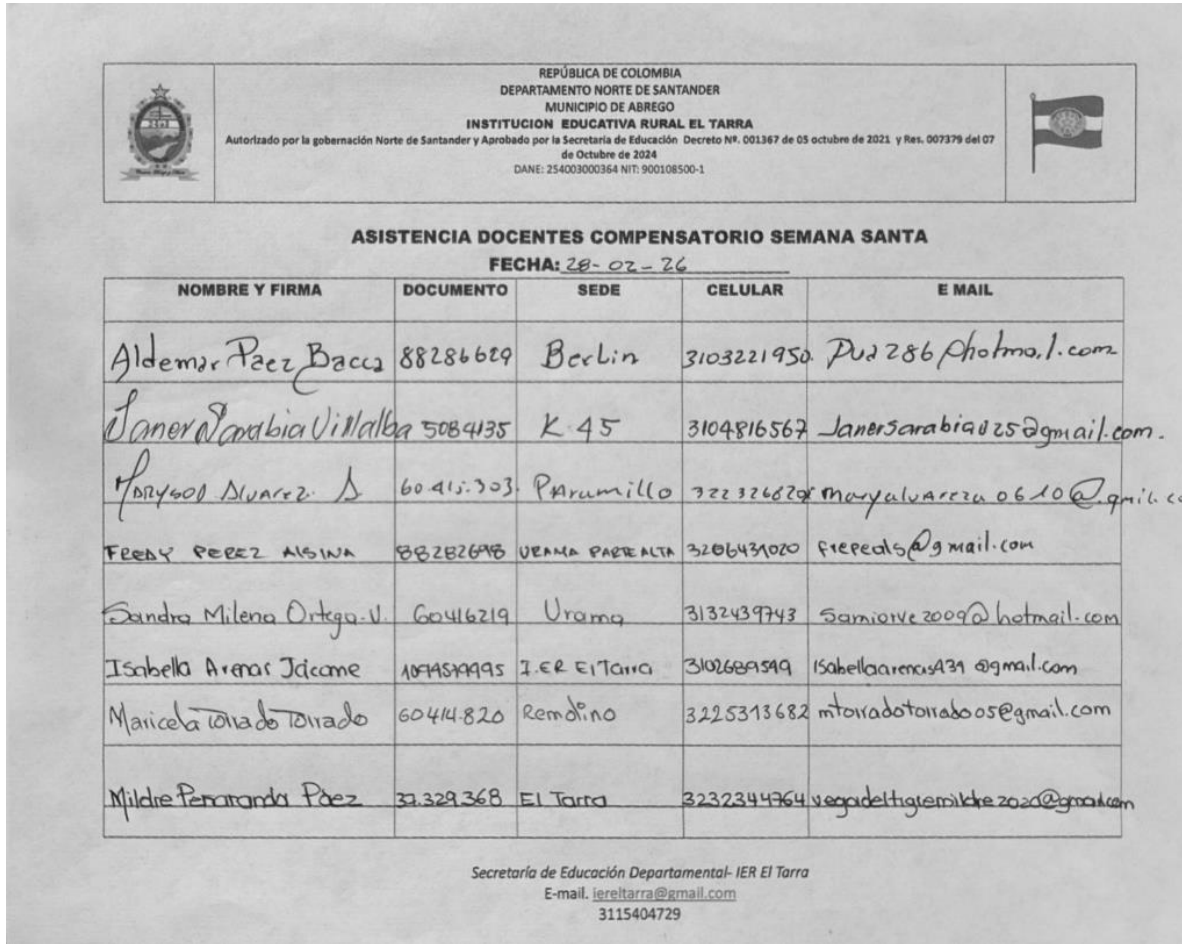 REPÚBLICA DE COLOMBIA
DEPARTAMENTO NORTE DE SANTANDER
MUNICIPIO DE ABREGO
INSTITUCION EDUCATIVA RURAL EL TARRA
Autorizado por la gobernación Norte de Santander y Aprobado por la Secretaria de Educación Decreto Nº. 001367 de 05 octubre de 2021 y Res. 007379 del 07
de Octubre de 2024
DANE: 254003000364 NIT: 900108500-1
ASISTENCIA DOCENTES COMPENSATORIO SEMANA SANTA
FECHA: 28-02-26
NOMBRE Y FIRMA DOCUMENTO SEDE CELULAR E MAIL
Aldemar Paez Bacca 88286629 Berlin 3103221950.
Janer Sarabia Villalba 5084135 K 45 3104816567
Alvarez A 60.415.303. PArumillo
FREDY PEREZ AlSINA 88282698 URAMA PARTE ALTA 3206431020 frepeals@gmail.com
Sandra Milena Ortega.V. 60416219 Urama 3132439743 samiorve2009@hotmail.com
Isabella Arenas Jácome I.E.R El Tarra 3102689599 Isabellaarenas431@gmail.com
Maricela Torrado Torrado 60414.820 Remolino 3225313682 mtorradotorrado05@gmail.com
Mildre Peñaranda Páez 37.329.368 El Tarra 3232344764 vegadeltigremildre2020@gmail.com
Secretaría de Educación Departamental- IER El Tarra
E-mail. iereltarra@gmail.com
3115404729